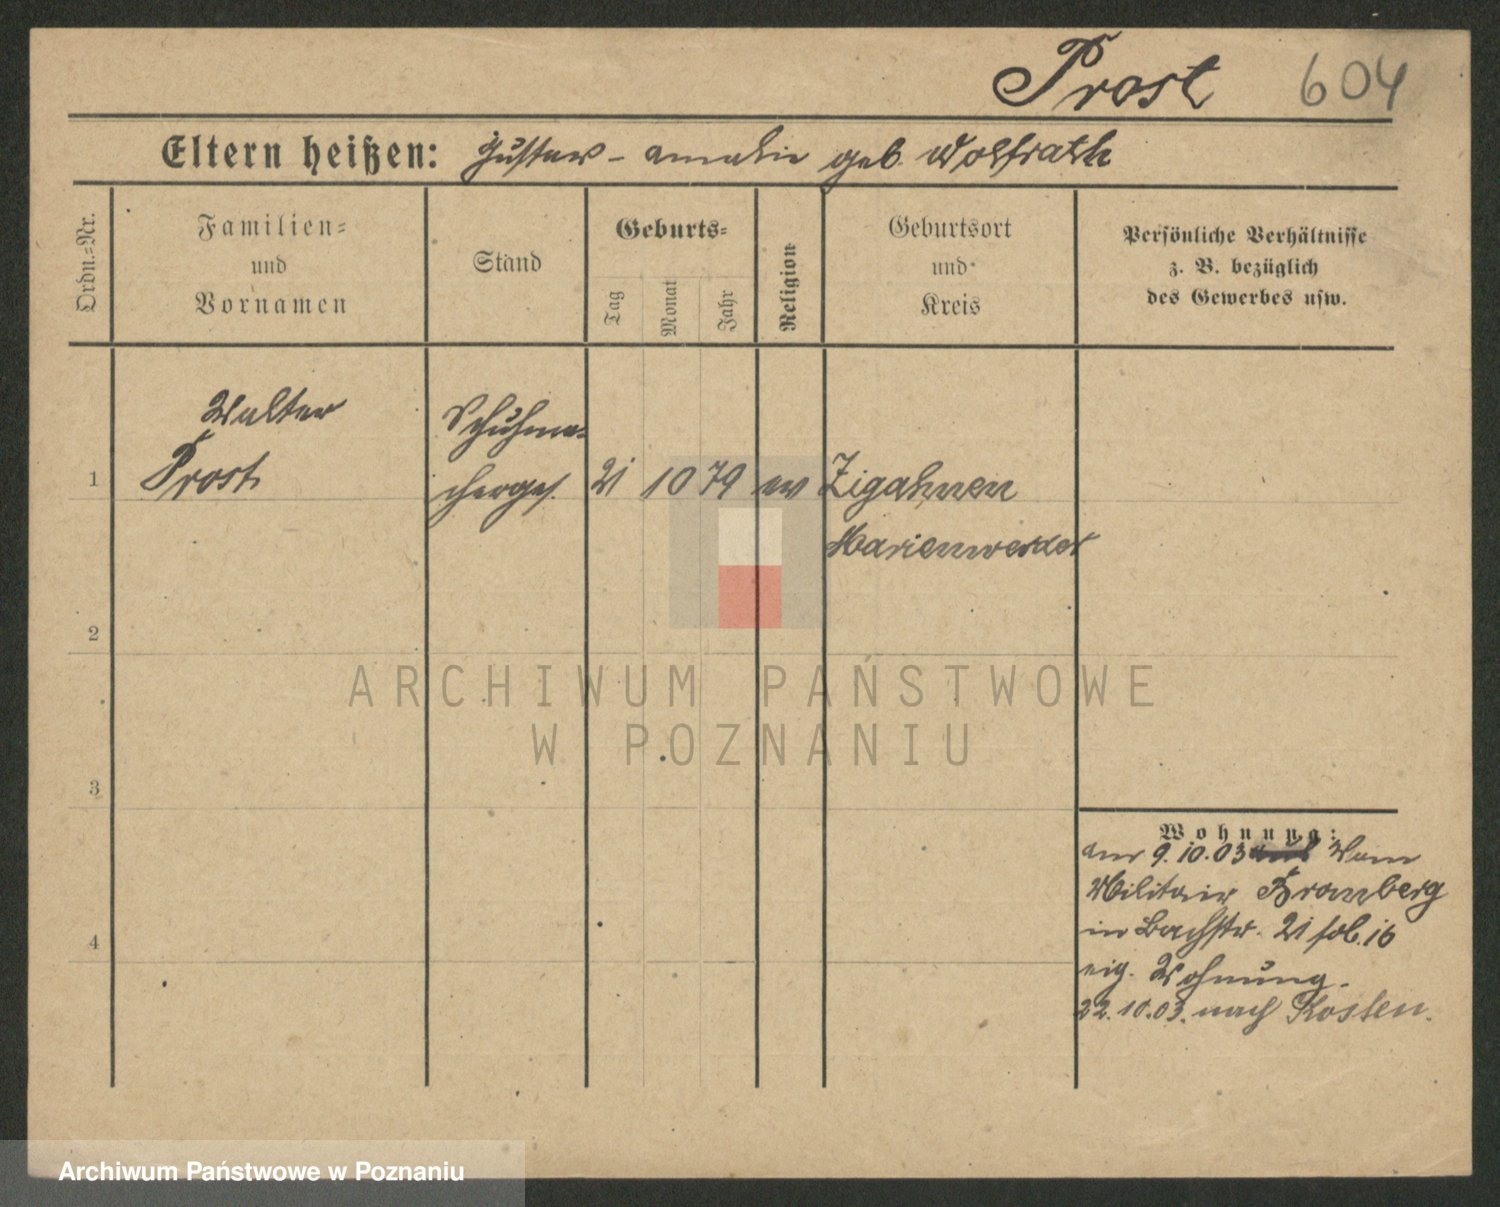 Prost 604
Eltern heißen: Gustav - Amalie geb. Wolfrath
Ordn.=Nr.
Familien=
und
Vornamen
Stand
Geburts=
Tag
Monat
Jahr
Religion
Geburtsort
und
Kreis
Persönliche Verhältnisse
z. B. bezüglich
des Gewerbes usw.
1
Walter
Prost
Schuhma=
cherges.
21 10 79 ev
Zigahnen
Marienwerder
2
3
4
Wohnung:
am 9.10.03 Vom
Militair Bromberg
in Bachstr. 21 fol. 16
eig. Wohnung.
22.10.03. nach Kosten.
ARCHIWUM PAŃSTWOWE
W POZNANIU
Archiwum Państwowe w Poznaniu